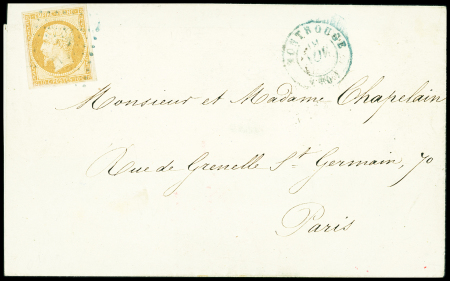 MONTROUGE
Monsieur et Madame Chapelain
Rue de Grenelle St Germain, 70
Paris